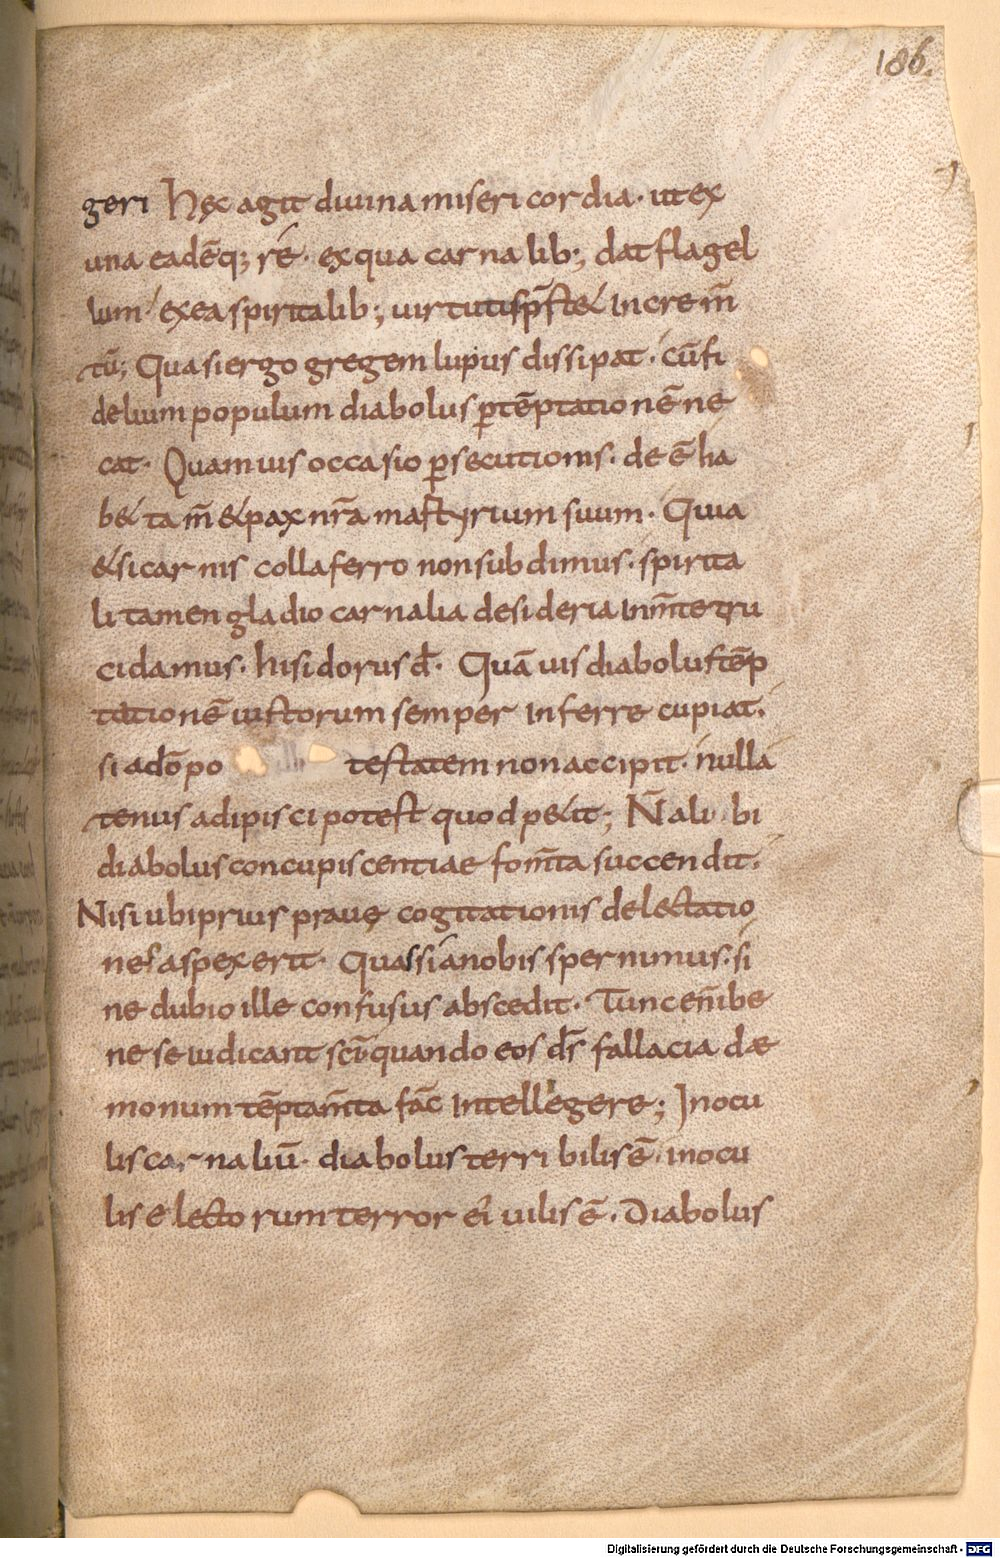 186.
geri Hęc agit diuina misericordia· ut ex
una eadēq; rē· ex qua carnalib; dat flagel
lum· ex ea spiritalib; uirtutis p̄stet increm̄
tū; Quasi ergo gregem lupus dissipat· cū fi
delium populum diabolus ꝑ tēptationē ne
cat· Quamuis occasio ꝑsecutionis· deē ha
bet tam̄ et pax nr̄a martyrium suum· Quia
et si carnis colla ferro non subdimus· spirita
li tamen gladio carnalia desideria in m̄te tru
cidamus· hisidorus d̄· Quā uis diabolus tēp
tationē iustorum semper inferre cupiat·
si a dō po testatem non accipit· nulla
tenus adipisci potest quod petit; N̄ alubi
diabolus concupiscentiae fom̄ta succendit·
Nisi ubi prius prauę cogitationis delectatio
nes aspexerit· Quas si a nobis spernimus· si
ne dubio ille confusus abscedit· Tunc en̄ be
ne se iudicant sc̄i quando eos d̄s fallacia dae
monum tēptam̄ta fac̄ intellegere; In ocu
lis carnaliū· diabolus terribilis ē· in ocu
lis electorum terror ei uilis ē· Diabolus
Digitalisierung gefördert durch die Deutsche Forschungsgemeinschaft - DFG